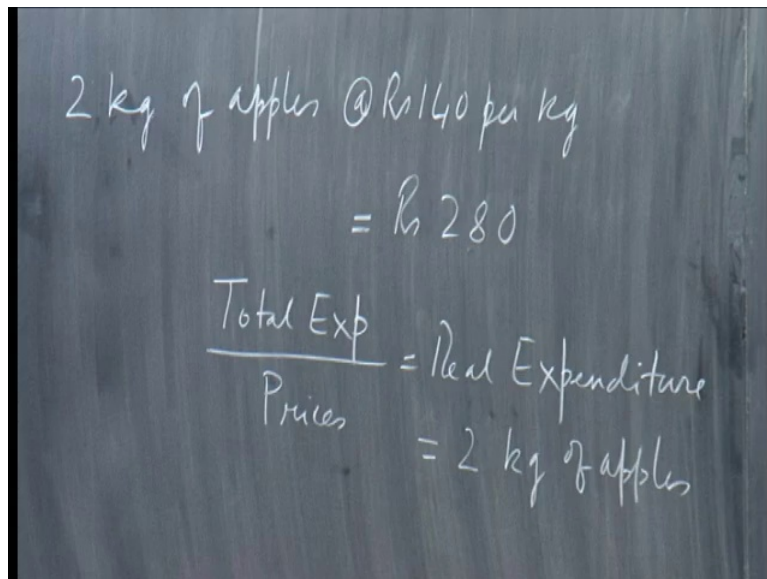 2 kg of apples @ Rs 140 per kg
= Rs 280
Total Exp
Prices
= Real Expenditure
= 2 kg of apples